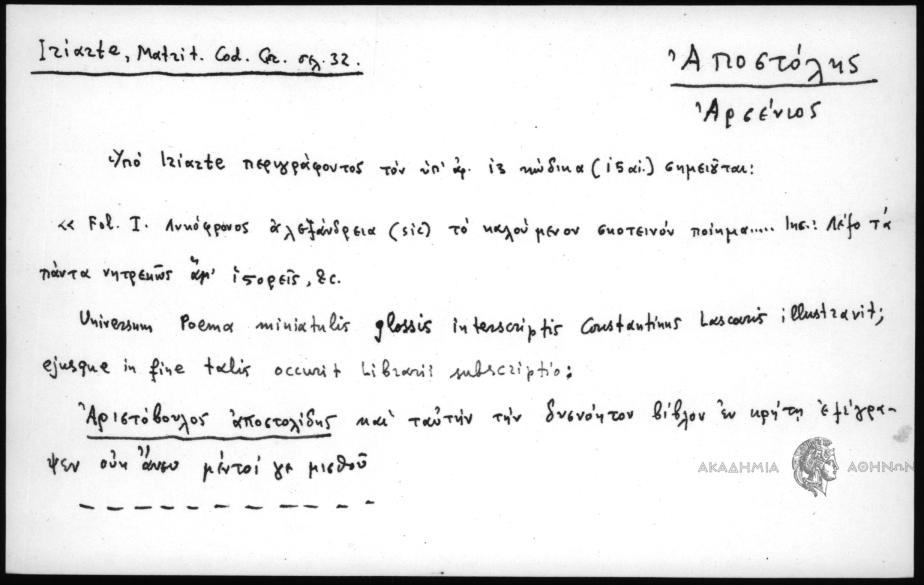 Iriarte, Matrit. Cod. Gr. σελ. 32.
Ἀποστόλης
Ἀρσένιος
Ὑπό Iriarte περιγράφοντος τόν ὑπ' ἀρ. 13 κώδικα (15 αἰ.) σημειοῦται:
« Fol. I. Λυκόφρονος ἀλεξάνδρεια (sic) τό καλούμενον σκοτεινόν ποίημα..... Inc.: Λέξο τά
πάντα νητρεκῶς ἅμ' ἱστορεῖς, &c.
Universum Poema miniatulis glossis interscriptis Constantinus Lascaris illustravit;
ejusque in fine talis occurit Librarii subscriptio:
Ἀριστόβουλος ἀποστολίδης καί ταύτην τήν δυσνόητον βίβλον ἐν κρήτῃ ἐξέγρα-
ψεν οὐκ ἄνευ μέντοί γε μισθοῦ
ΑΚΑΔΗΜΙΑ ΑΘΗΝΩΝ